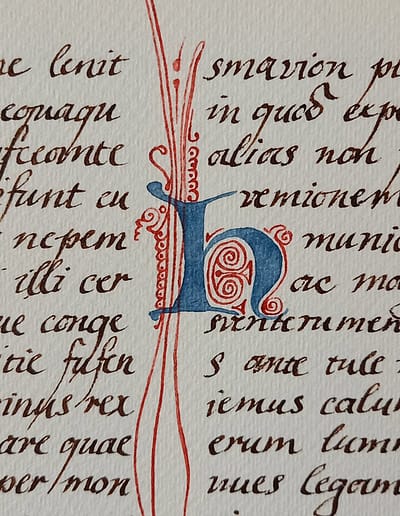 ne lenit
ecquaqu
efunt eu
nepem
illi cer
ue conge
itie fufen
rinus rex
are quae
per mon
smavion pl
in quod expe
alias non
vemionem
munic
hac mo
s ante tule
iemus calu
erum lumn
nues legam